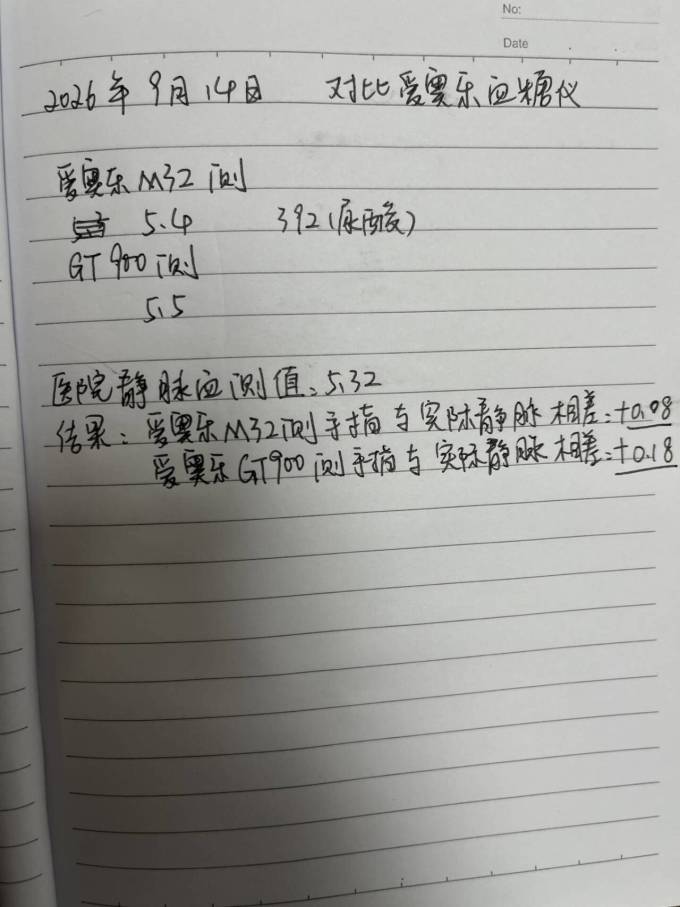 No:
Date
2026年9月14日 对比爱奥乐血糖仪
爱奥乐M32测
5.4 392(尿酸)
GT900测
5.5
医院静脉血测值:5.32
结果:爱奥乐M32测手指与实际静脉相差:+0.08
爱奥乐GT900测手指与实际静脉相差:+0.18